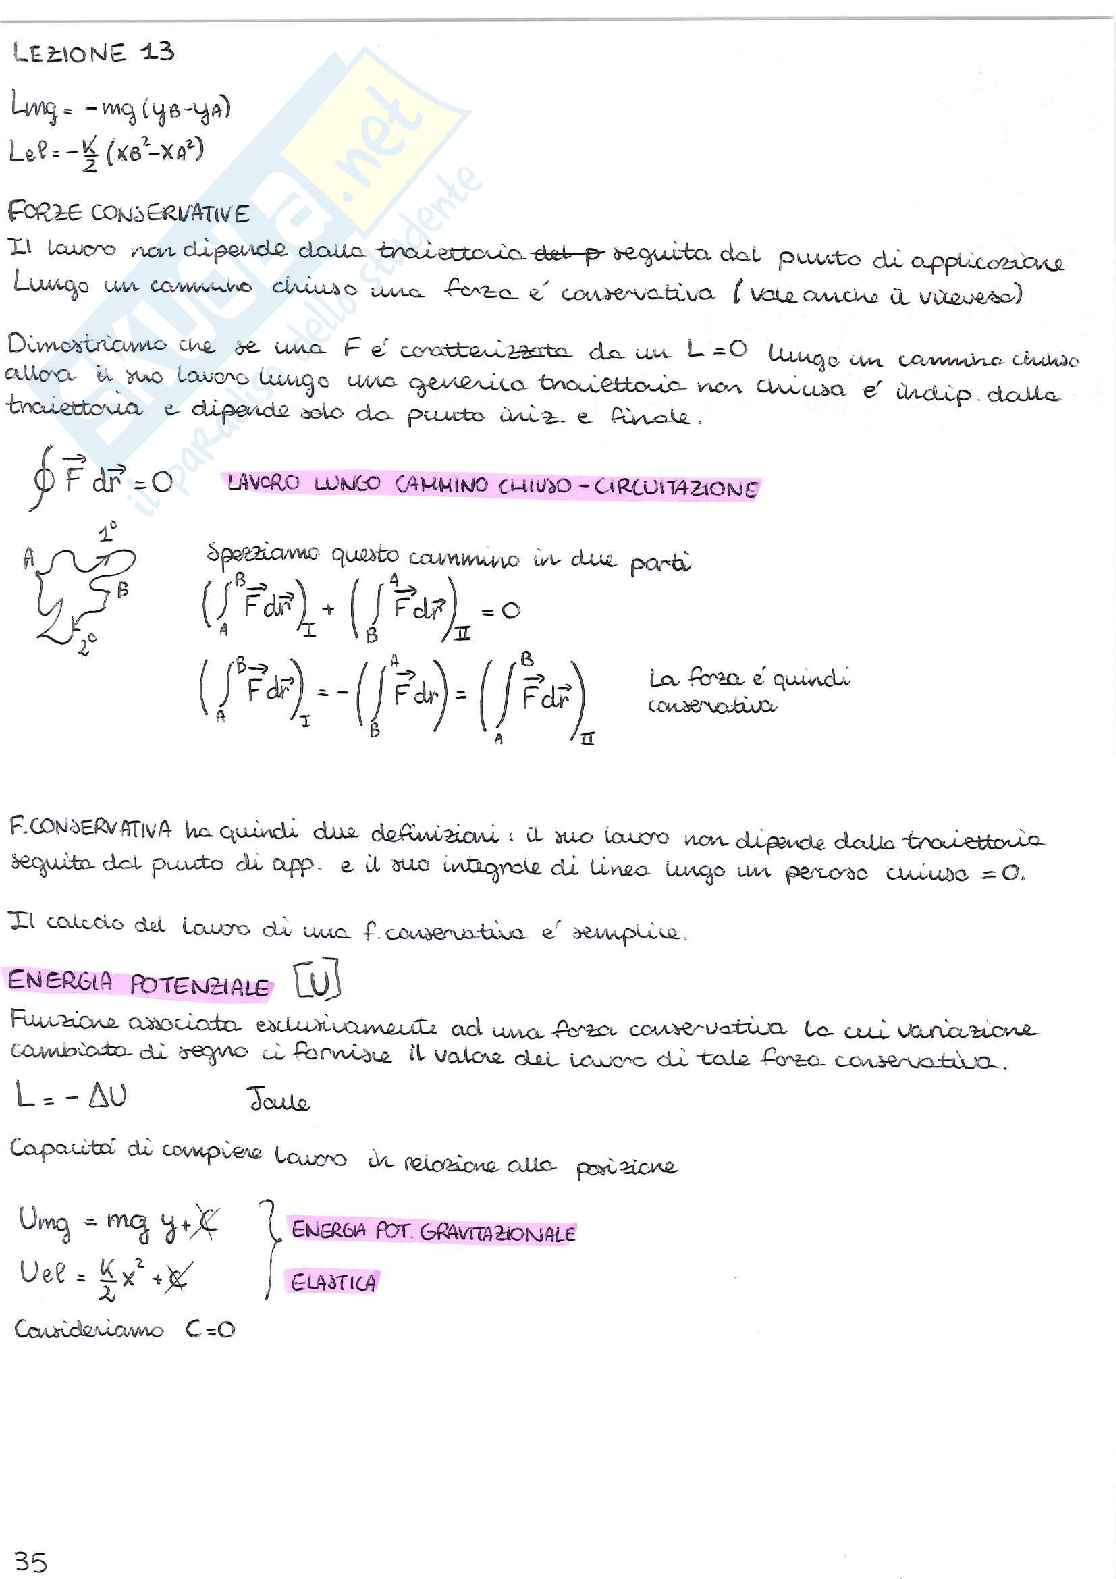 LEZIONE 13
Lmg = -mg(yB-yA)
Lel = -K/2 (xB²-xA²)
FORZE CONSERVATIVE
Il lavoro non dipende dalla traiettoria del p seguita dal punto di applicazione
Lungo un cammino chiuso una forza é conservativa (vale anche il viceversa)
Dimostriamo che se una F é caratterizzata da un L=0 lungo un cammino chiuso
allora il suo lavoro lungo una generica traiettoria non chiusa é indip. dalla
traiettoria e dipende solo da punto iniz. e finale.
∮ F⃗ dr⃗ = 0 LAVORO LUNGO CAMMINO CHIUSO - CIRCUITAZIONE
A 1° B 2°
Spezziamo questo cammino in due parti
(∫_A^B F⃗ dr⃗)_I + (∫_B^A F⃗ dr⃗)_II = 0
(∫_A^B F⃗ dr⃗)_I = -(∫_B^A F⃗ dr) = (∫_A^B F⃗ dr⃗)_II La forza é quindi
conservativa
F. CONSERVATIVA ha quindi due definizioni: il suo lavoro non dipende dalla traiettoria
seguita dal punto di app. e il suo integrale di linea lungo un percorso chiuso = 0.
Il calcolo del lavoro di una f. conservativa é semplice.
ENERGIA POTENZIALE [U]
Funzione associata esclusivamente ad una forza conservativa la cui variazione
cambiata di segno ci fornisce il valore del lavoro di tale forza conservativa.
L = - ΔU Joule
Capacitá di compiere lavoro in relazione alla posizione
Umg = mg y + C } ENERGIA POT. GRAVITAZIONALE
Uel = K/2 x² + C ELASTICA
Consideriamo C=0
35
SKUOLA.net
il paradiso dello studente